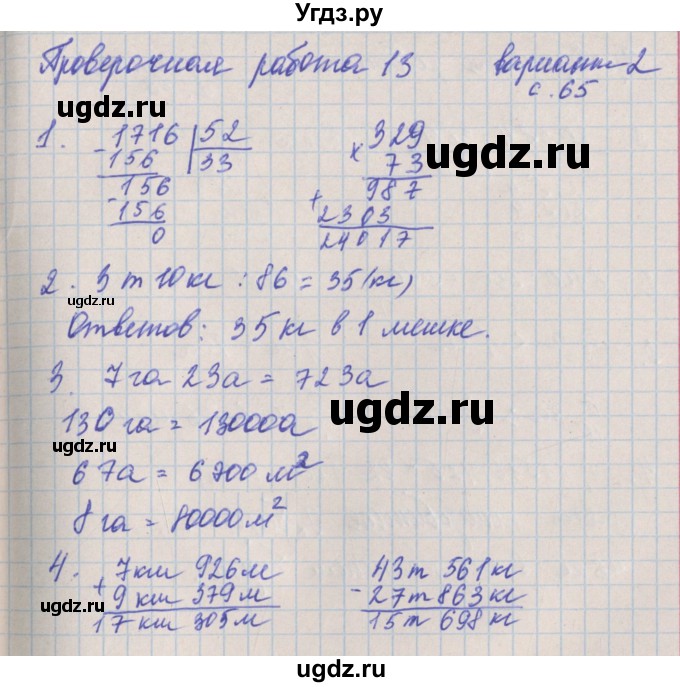 Угдз.ру
Проверочная работа 13 вариант 2
с. 65
1. 1716 | 52
- 156 33
156
- 156
0
329
x 73
987
+ 2303
24017
2. 3 т 10 кг : 86 = 35 (кг)
Ответов: 35 кг в 1 мешке.
3. 7 га 23а = 723а
130 га = 13000а
67а = 6700 м²
8 га = 80000 м²
4. 7 км 926 м
+ 9 км 379 м
17 км 305 м
43 т 561 кг
- 27 т 863 кг
15 т 698 кг
ugdz.ru
ugdz.ru
ugdz.ru
ugdz.ru
ugdz.ru
ugdz.ru
ugdz.ru
ugdz.ru
ugdz.ru
ugdz.ru